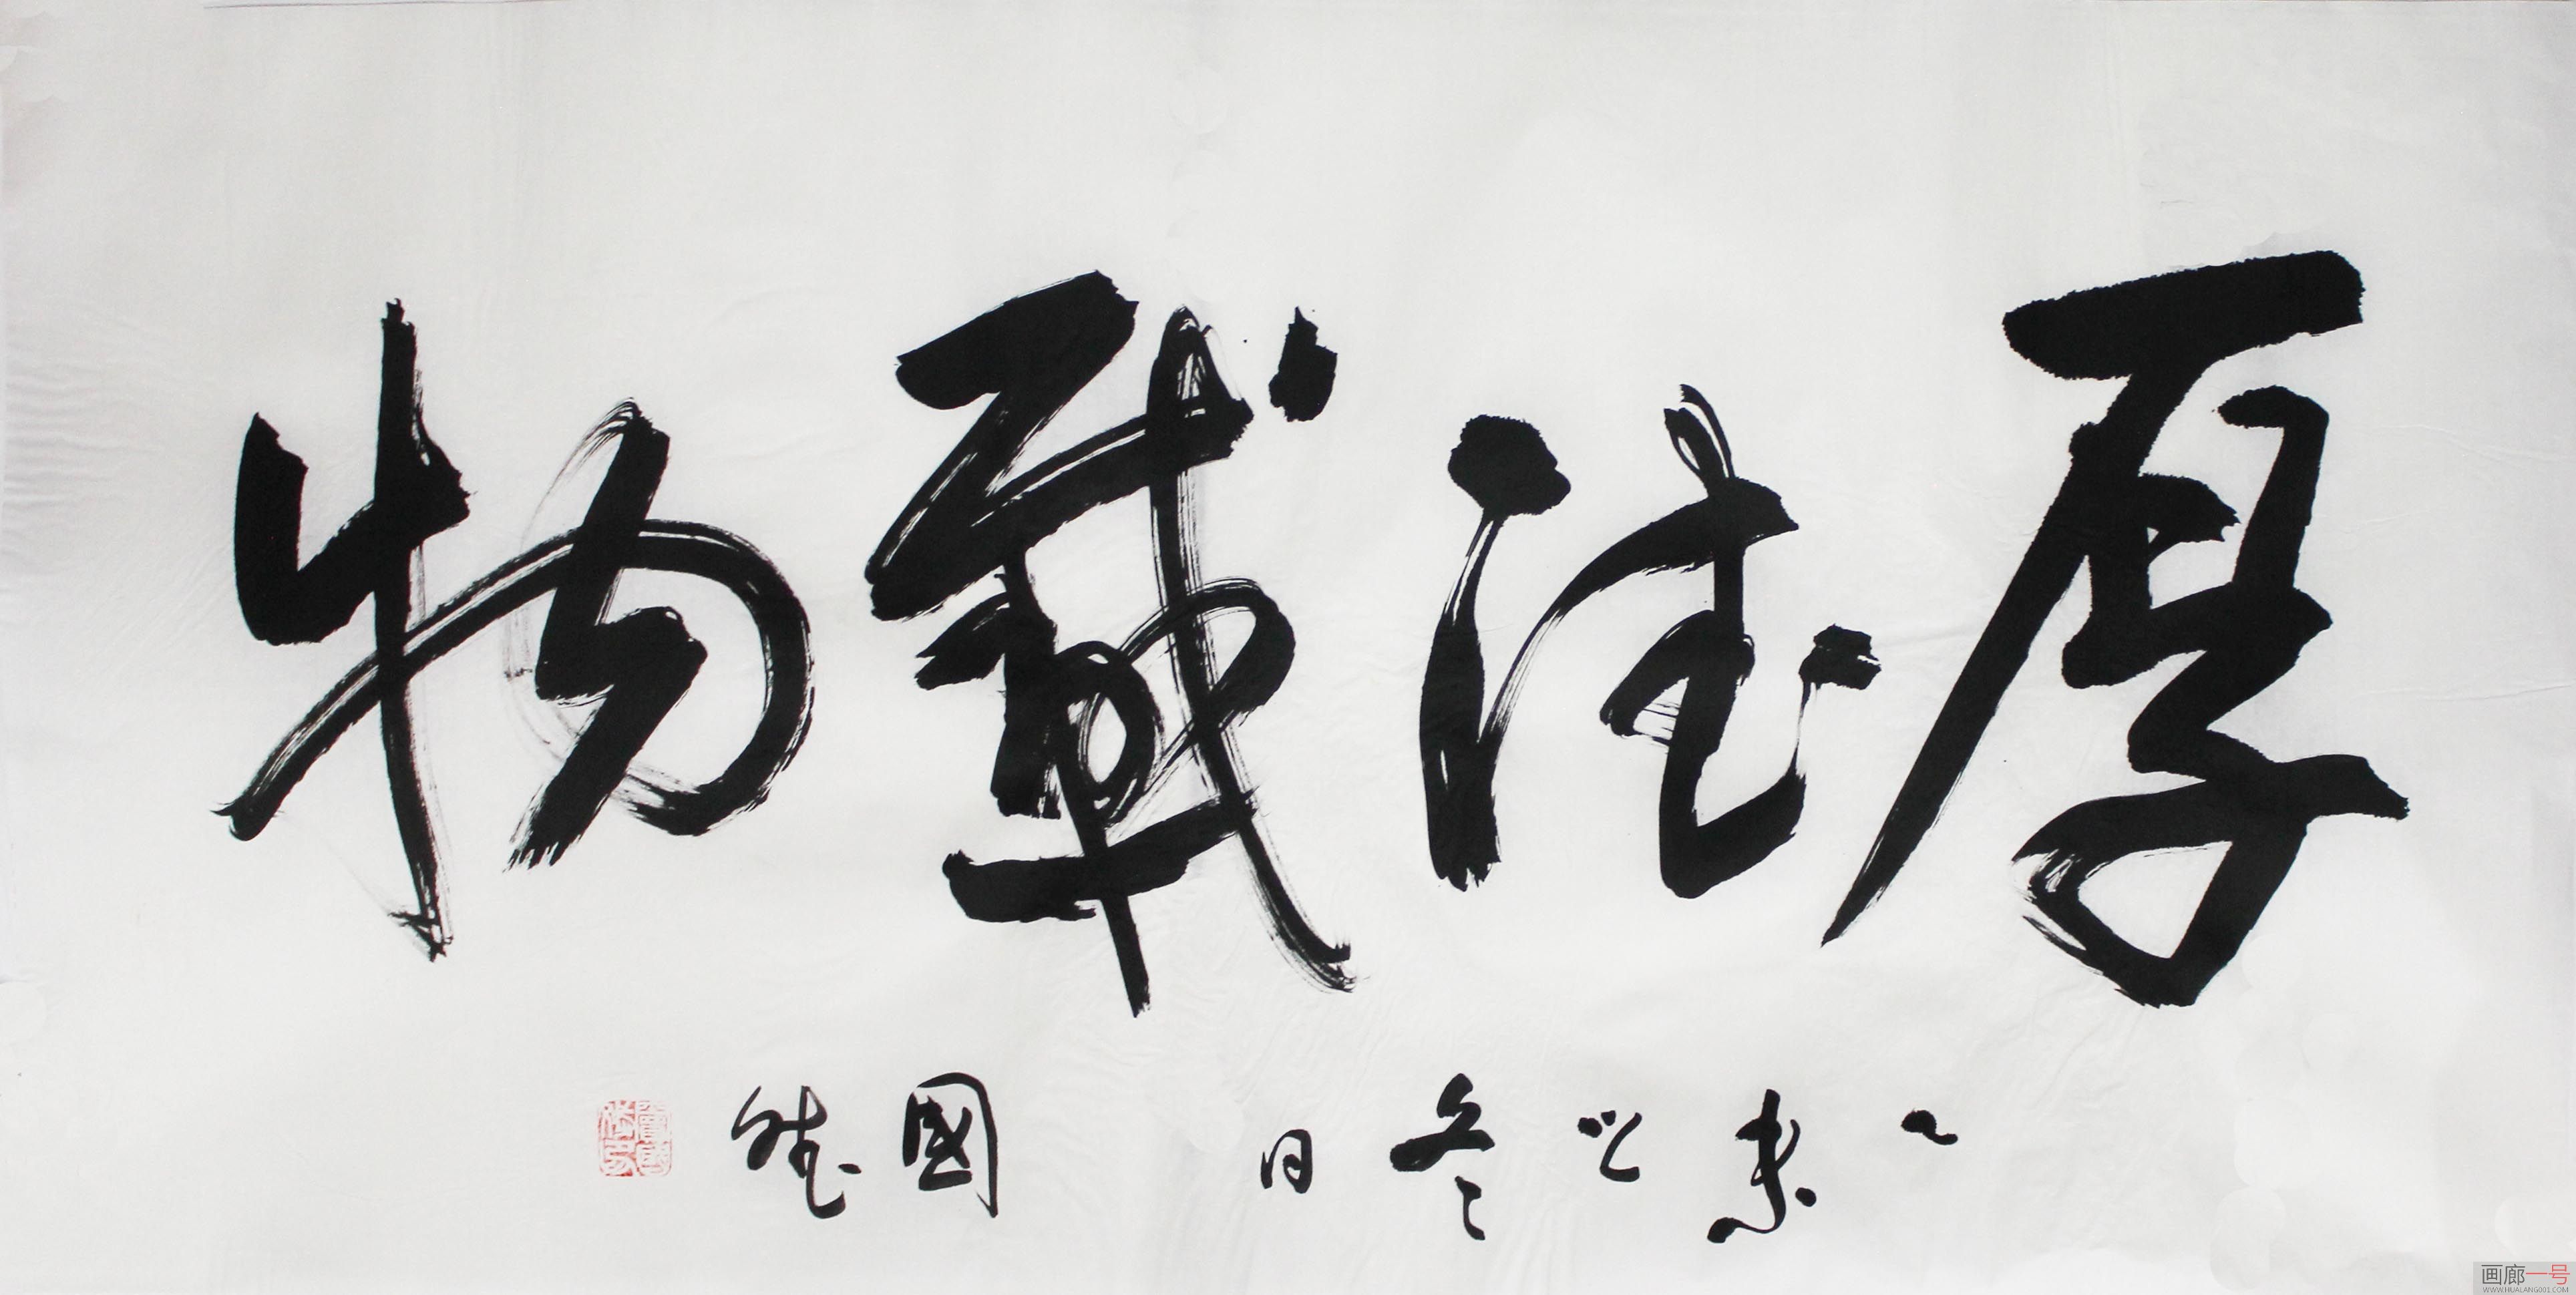 厚德载物
乙未之冬日 國斌
画廊一号
WWW.HUALANG001.COM